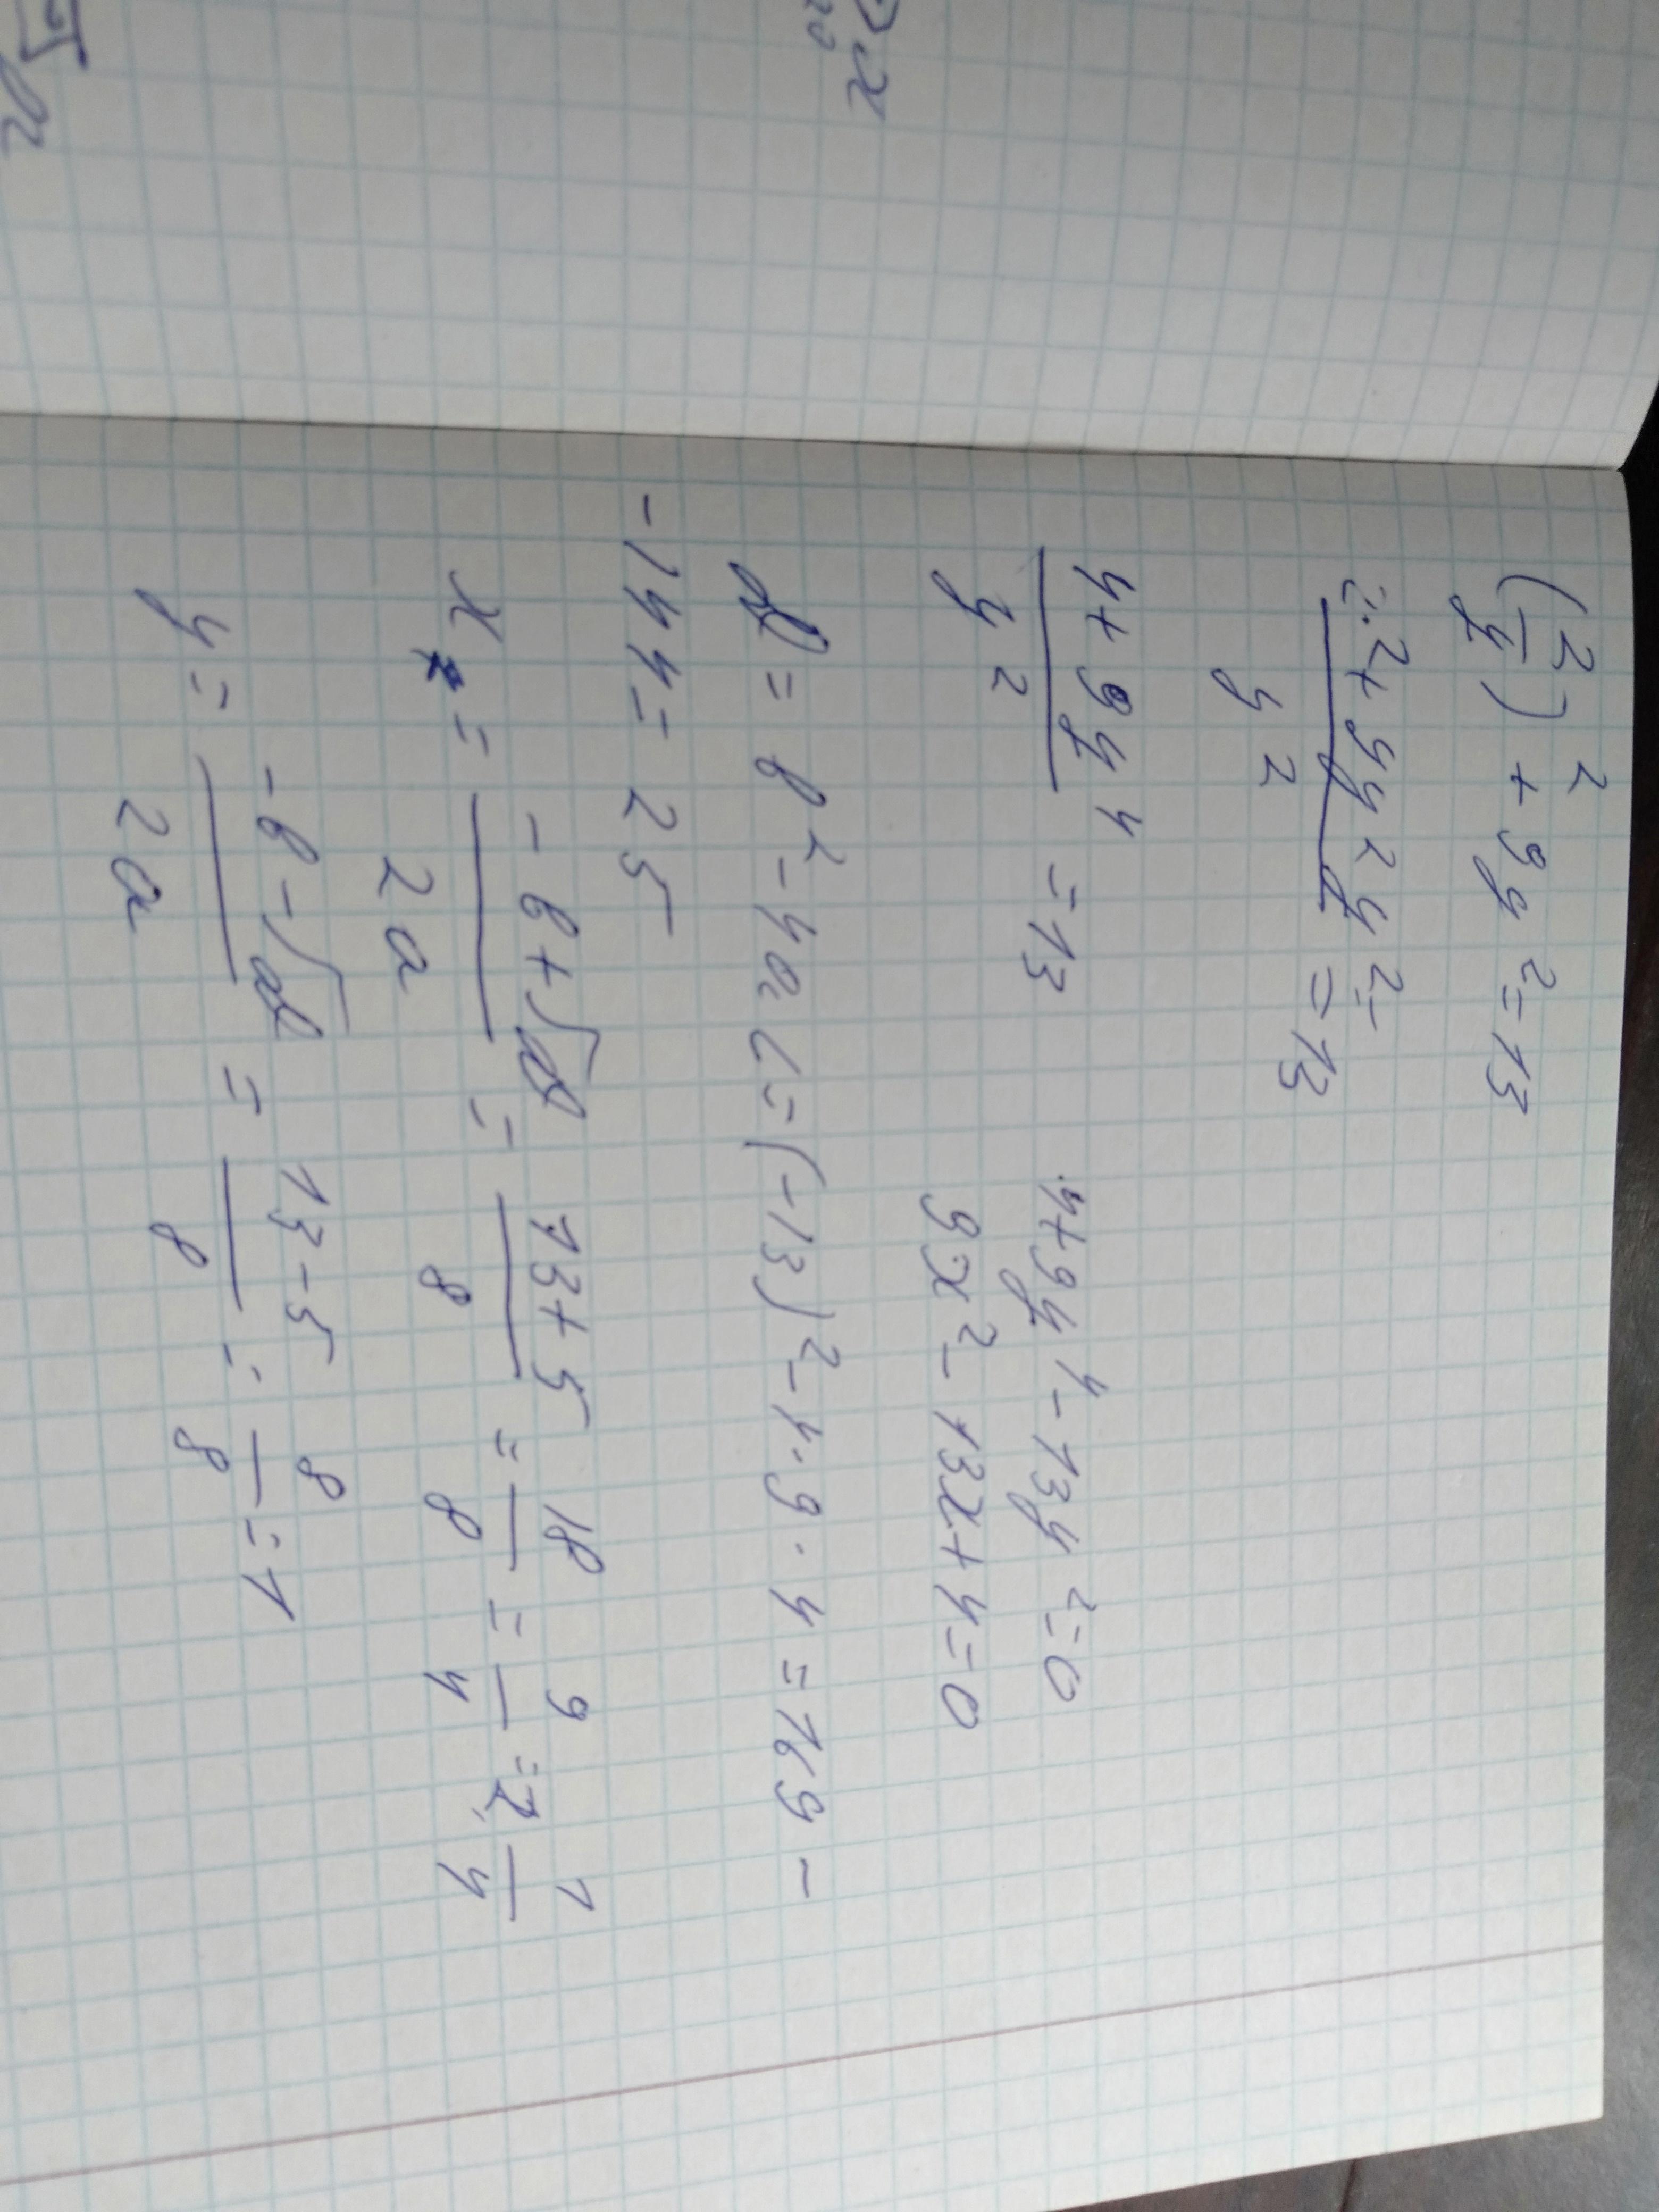 (2/y)² + 9y² = 13
2² + 9y²y² / y² = = 13
4 + 9y⁴ / y² = 13
4 + 9y⁴ - 13y² = 0
9x² - 13x + 4 = 0
D = b² - 4ac = (-13)² - 4·9·4 = 169 -
- 144 = 25
x = -b + √D / 2a = 13 + 5 / 8 = 18/8 = 9/4 = 2 1/4
y = -b - √D / 2a = 13 - 5 / 8 = 8/8 = 1